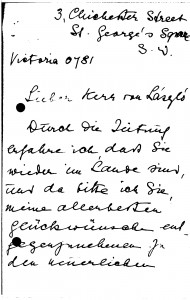 3, Chichester Street
St. George's Sqre
S. W.
Victoria 0781
Lieber Herr von László
Durch die Zeitung
erfahre ich dass Sie
wieder im Lande sind,
und da bitte ich Sie,
meine allerbesten
Glückwünsche ent-
gegenzunehmen zu
den neuerlichen